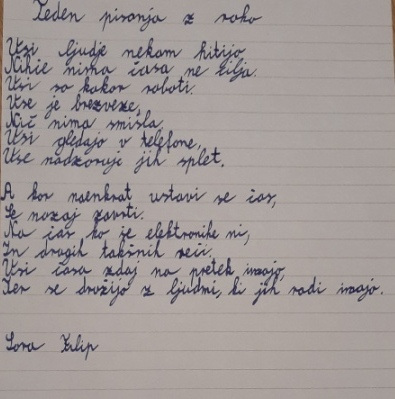 Teden pisanja z roko
Vsi ljudje nekam hitijo,
Nihče nima časa ne cilja.
Vsi so kakor roboti.
Vse je brezveze,
Nič nima smisla.
Vsi gledajo v telefone,
Vse nadzoruje jih splet.
A kar naenkrat ustavi se čas,
Se nazaj zavrti.
Na čas ko je elektronike ni,
In drugih takšnih reči.
Vsi časa zdaj na pretek imajo,
Ter se družijo z ljudmi, ki jih radi imajo.
Sara Filip